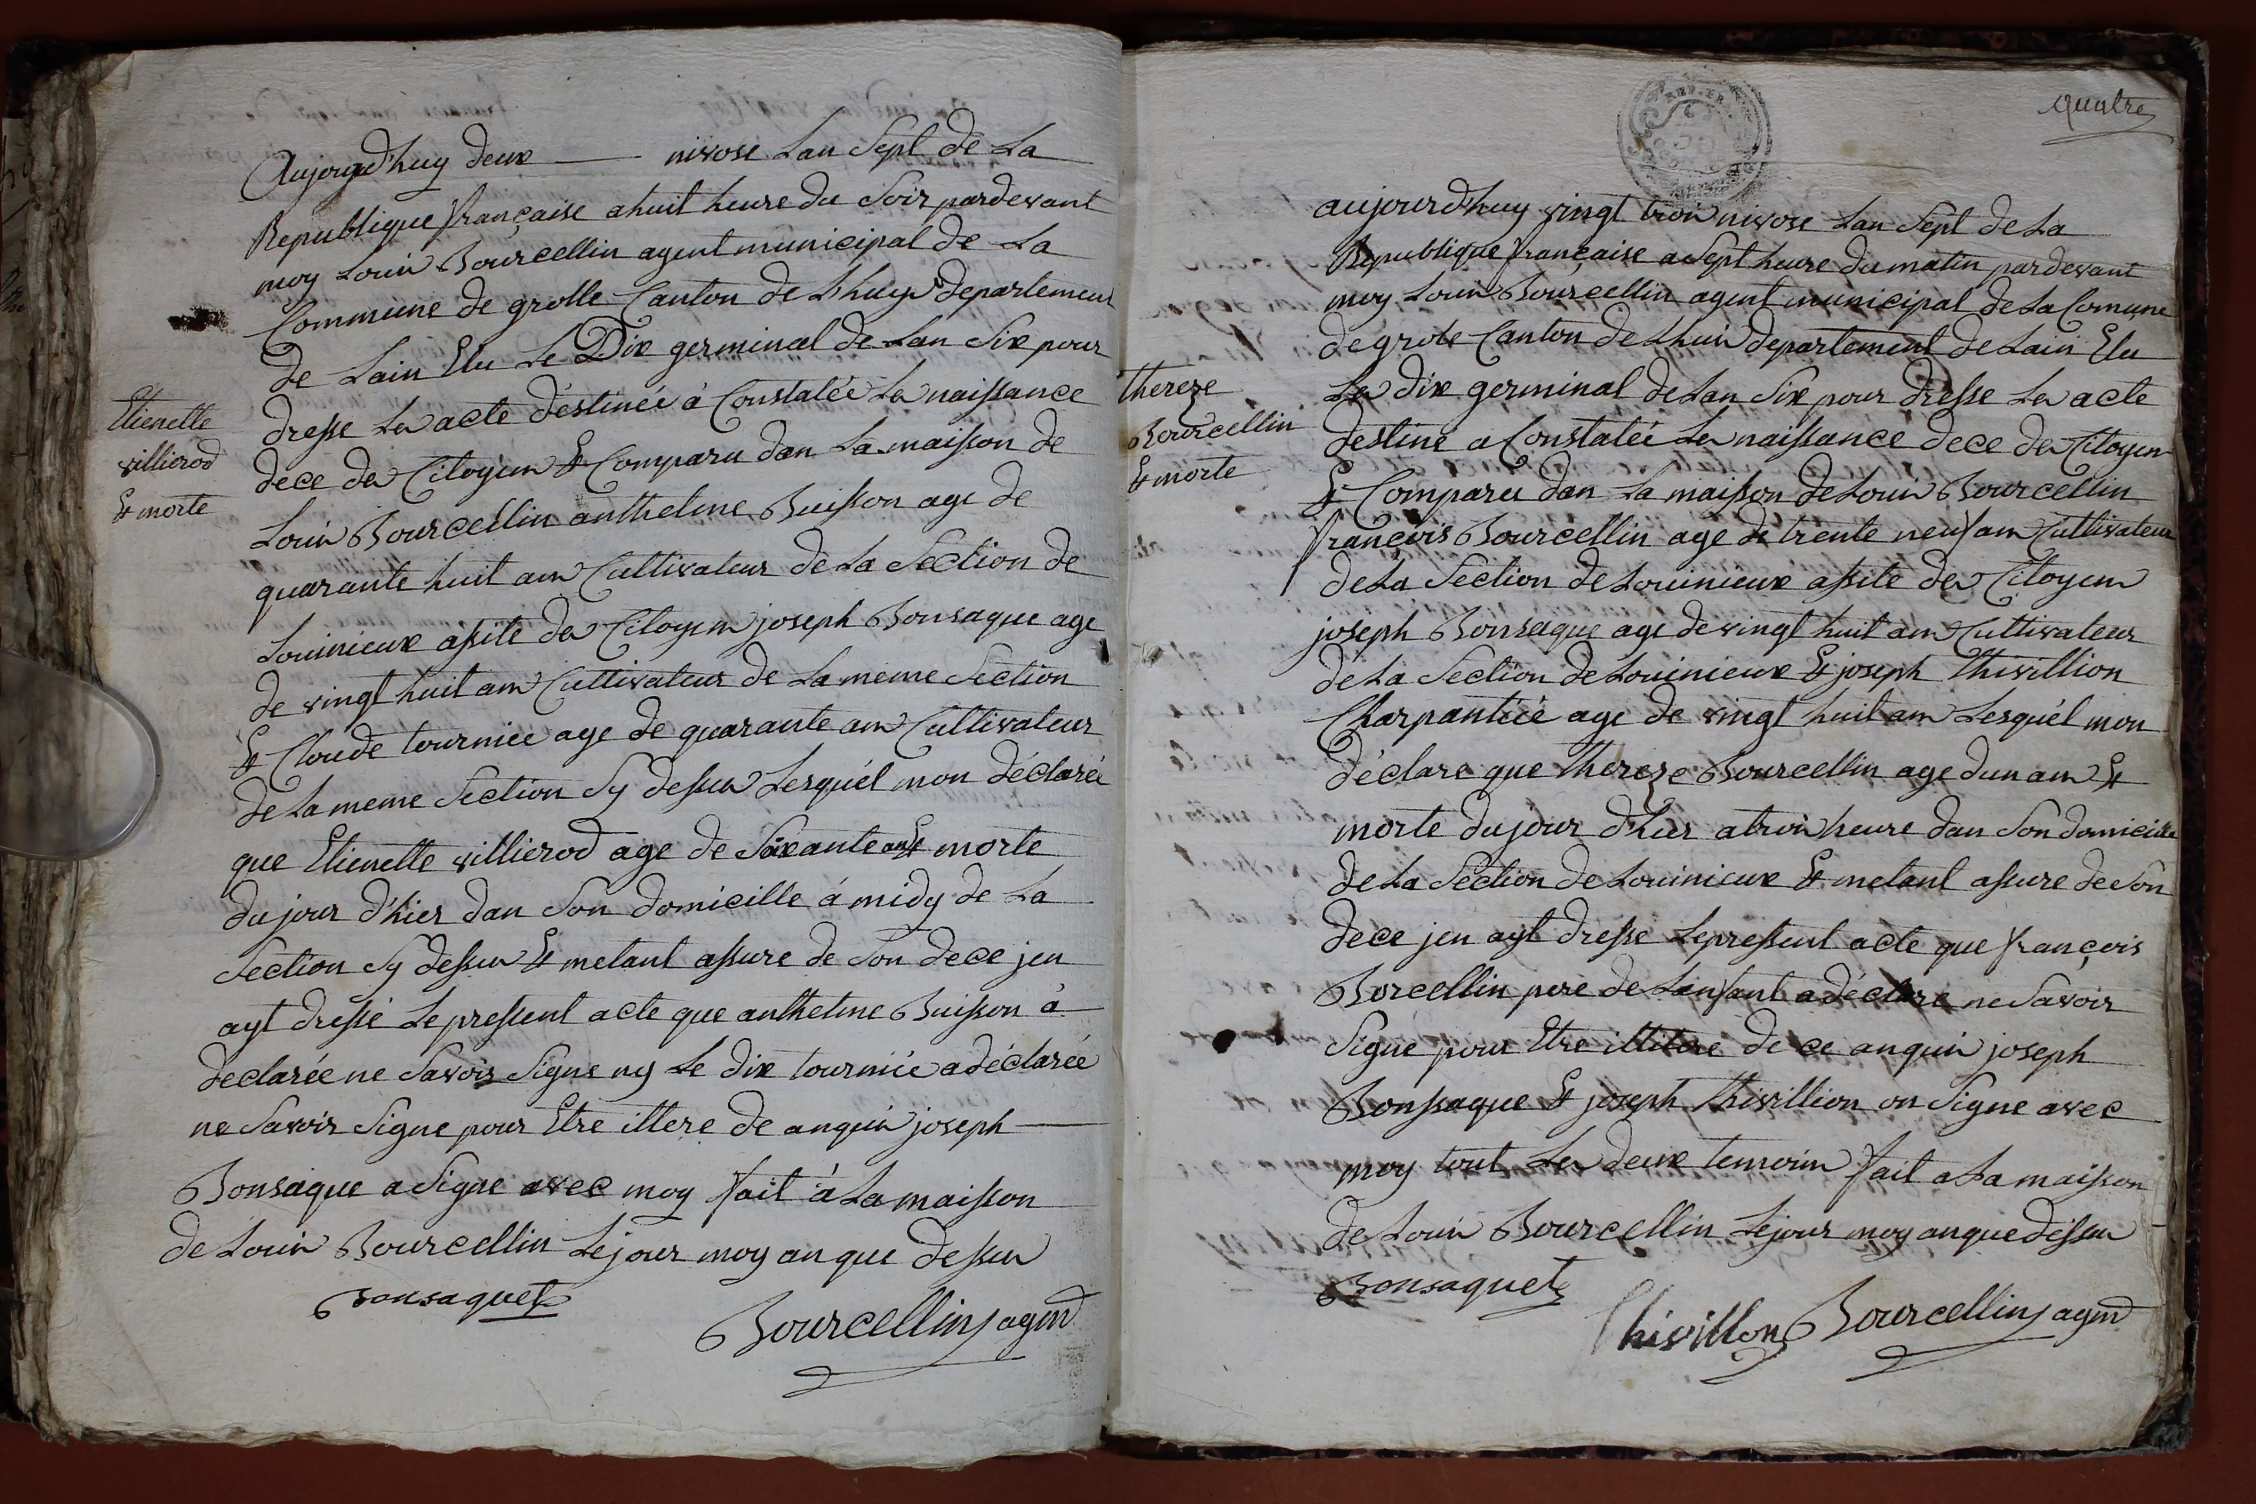 Aujourgd'huy deux nivose Lan Sept de La
Republique française a huit heure du Soir pardevant
moy Louis Bourcellin agent municipal de La
Commune de grolle Canton de Lhuys departement
de Lain Elu Le Dix germinal de Lan Six pour
dresse Les acte déstinéé à Constatéé La naissance
dece des Citoyen & Comparu dan La maisson de
Louis Bourcellin anthelme Buisson age de
quarante huit ans Cultivateur de La Section de
Louinieux assite des Citoyen joseph Bonsaque age
de vingt huit ans Cultivateur de La meme Section
& Cloude tourniee age de quarante ans Cultivateur
de La meme Section Sy dessus Lesquél mon déclaréé
que Etienette villierod age de Soixante ans & morte
du jour d'hier dan Son domicille á midy de La
Section Sy dessus & metant assure de Son dece jen
ayt dressé Le pressent acte que anthelme Buisson à
declaréé ne Savoir Signe ny Le dix tourniéé a déclaréé
ne Savoir Signe pour Etre illere de anquis joseph
Bonsaque a Signe avec moy fait à La maisson
de Louis Bourcellin Le jour moy an que dessus
Bonsaquet
Bourcellin agent
Etienette
villierod
& morte
quatre
aujourd'huy vingt trois nivose Lan Sept de La
Republique française a Sept heure du matin pardevant
moy Louis Bourcellin agent municipal de La Comune
de grole Canton de Lhuis departement de Lain Elu
Le dix germinal de Lan Six pour dresse Les acte
destine a Constatéé La naissance dece des Citoyen
& Comparu dan La maisson de Louis Bourcellin
françois Bourcellin age de trente neuf ans Cultivateur
de La Section de Louinieux assite des Citoyen
joseph Bonsaque age de vingt huit ans Cultivateur
de La Section de Louinieux & joseph thivillion
Charpantiéé age de vingt huit ans Lesquél mon
déclare que thereze Bourcellin age dun ans &
morte du jour d'hier a trois heure dan Son domicille
de La Section de Louinieux & metant assure de Son
dece jen ayt dresse Le pressent acte que françois
Borcellin pere de Lenfant a déclare ne Savoir
Signe pour Etre illitere de ce anquis joseph
Bonssaque & joseph thivillion on Signe avec
moy tout Les deux temoin fait a La maisson
de Louis Bourcellin Le jour moy an que dessus
Bonsaquet
Thivillon Bourcellin agent
thereze
Bourcellin
& morte